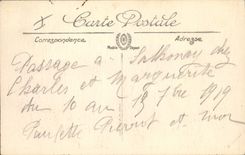 Carte Postale
Correspondance
Adresse
Passage à Sathonay chez
Charles et Marguerite
du 10 au 15 7bre 1919
Paulette Pierrot et moi